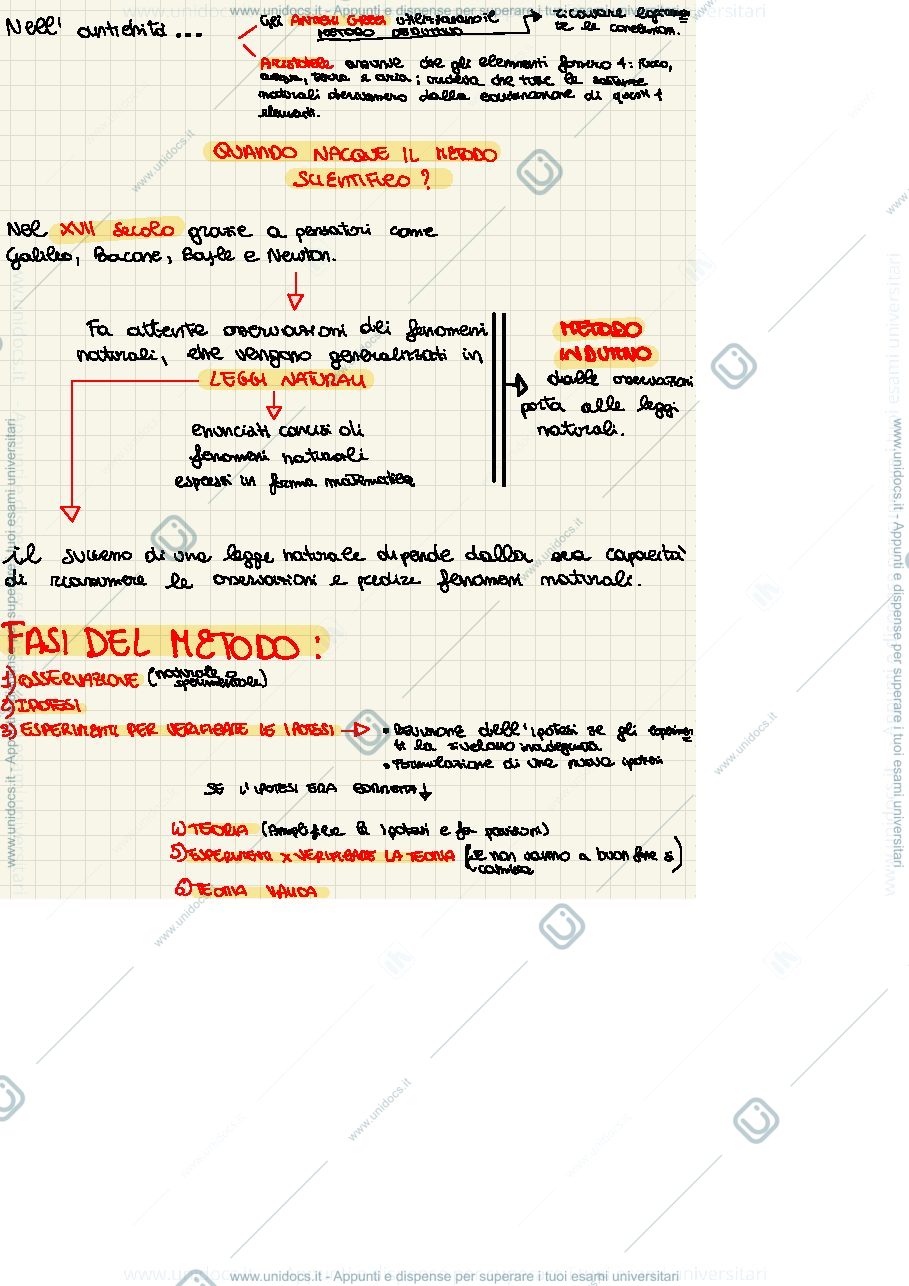 Nell' antichità ...
Gli Antichi Greci utilizzavano il
METODO DEDUTTIVO
ricavare logicamen
te le conclusioni.
Aristotele assunse che gli elementi fossero 4: fuoco,
acqua, terra e aria; credeva che tutte le sostanze
naturali derivassero dalla combinazione di questi 4
elementi.
QUANDO NACQUE IL METODO
SCIENTIFICO?
Nel XVII secolo grazie a pensatori come
Galileo, Bacone, Boyle e Newton.
Fa attente osservazioni dei fenomeni
naturali, che vengono generalizzati in
LEGGI NATURALI
enunciati concisi di
fenomeni naturali
espressi in forma matematica
METODO
INDUTTIVO
dalle osservazioni
porta alle leggi
naturali.
il successo di una legge naturale dipende dalla sua capacità
di riassumere le osservazioni e predire fenomeni naturali.
FASI DEL METODO:
1) OSSERVAZIONE (naturale o
sperimentale)
2) IPOTESI
3) ESPERIMENTI PER VERIFICARE LE IPOTESI
• Revisione dell'ipotesi se gli esperimen
ti la rivelano inadeguata
• Formulazione di una nuova ipotesi
SE L'IPOTESI ERA CORRETTA
4) TEORIA (Amplifica le ipotesi e fa previsioni)
5) ESPERIMENTI X VERIFICARE LA TEORIA (se non vanno a buon fine si
cambia)
6) TEORIA VALIDA
www.unidocs.it - Appunti e dispense per superare i tuoi esami universitari